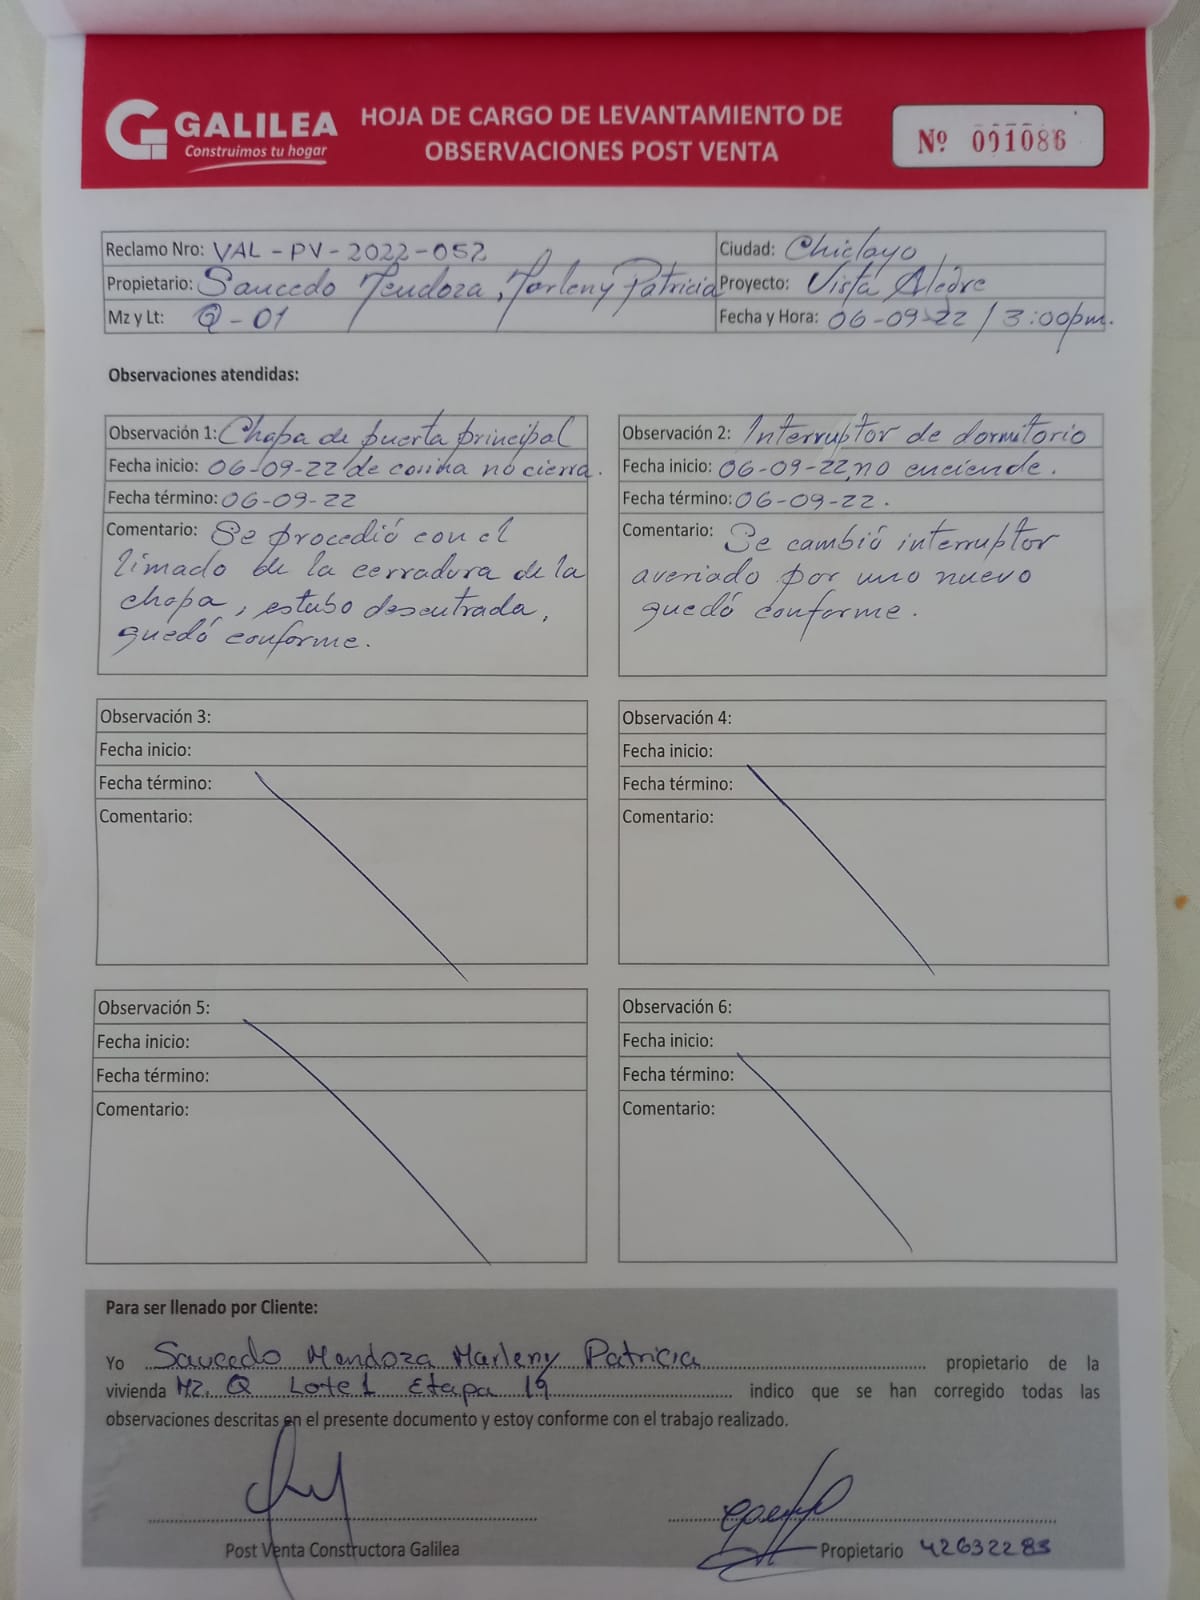 GALILEA
Construimos tu hogar
HOJA DE CARGO DE LEVANTAMIENTO DE
OBSERVACIONES POST VENTA
Nº 001086
Reclamo Nro: VAL-PV-2022-052
Ciudad: Chiclayo
Propietario: Saucedo Mendoza, Marleny Patricia
Proyecto: Vista Alegre
Mz y Lt: Q-01
Fecha y Hora: 06-09-22 / 3:00pm.
Observaciones atendidas:
Observación 1: Chapa de puerta principal
Fecha inicio: 06-09-22 de cocina no cierra.
Fecha término: 06-09-22
Comentario: Se procedió con el
limado de la cerradura de la
chapa, estubo descentrada,
quedó conforme.
Observación 2: Interruptor de dormitorio
Fecha inicio: 06-09-22, no enciende.
Fecha término: 06-09-22.
Comentario: Se cambió interruptor
averiado por uno nuevo
quedó conforme.
Observación 3:
Fecha inicio:
Fecha término:
Comentario:
Observación 4:
Fecha inicio:
Fecha término:
Comentario:
Observación 5:
Fecha inicio:
Fecha término:
Comentario:
Observación 6:
Fecha inicio:
Fecha término:
Comentario:
Para ser llenado por Cliente:
Yo Saucedo Mendoza Marleny Patricia propietario de la
vivienda Mz. Q Lote 1 Etapa 19 indico que se han corregido todas las
observaciones descritas en el presente documento y estoy conforme con el trabajo realizado.
Post Venta Constructora Galilea
Propietario 42632283